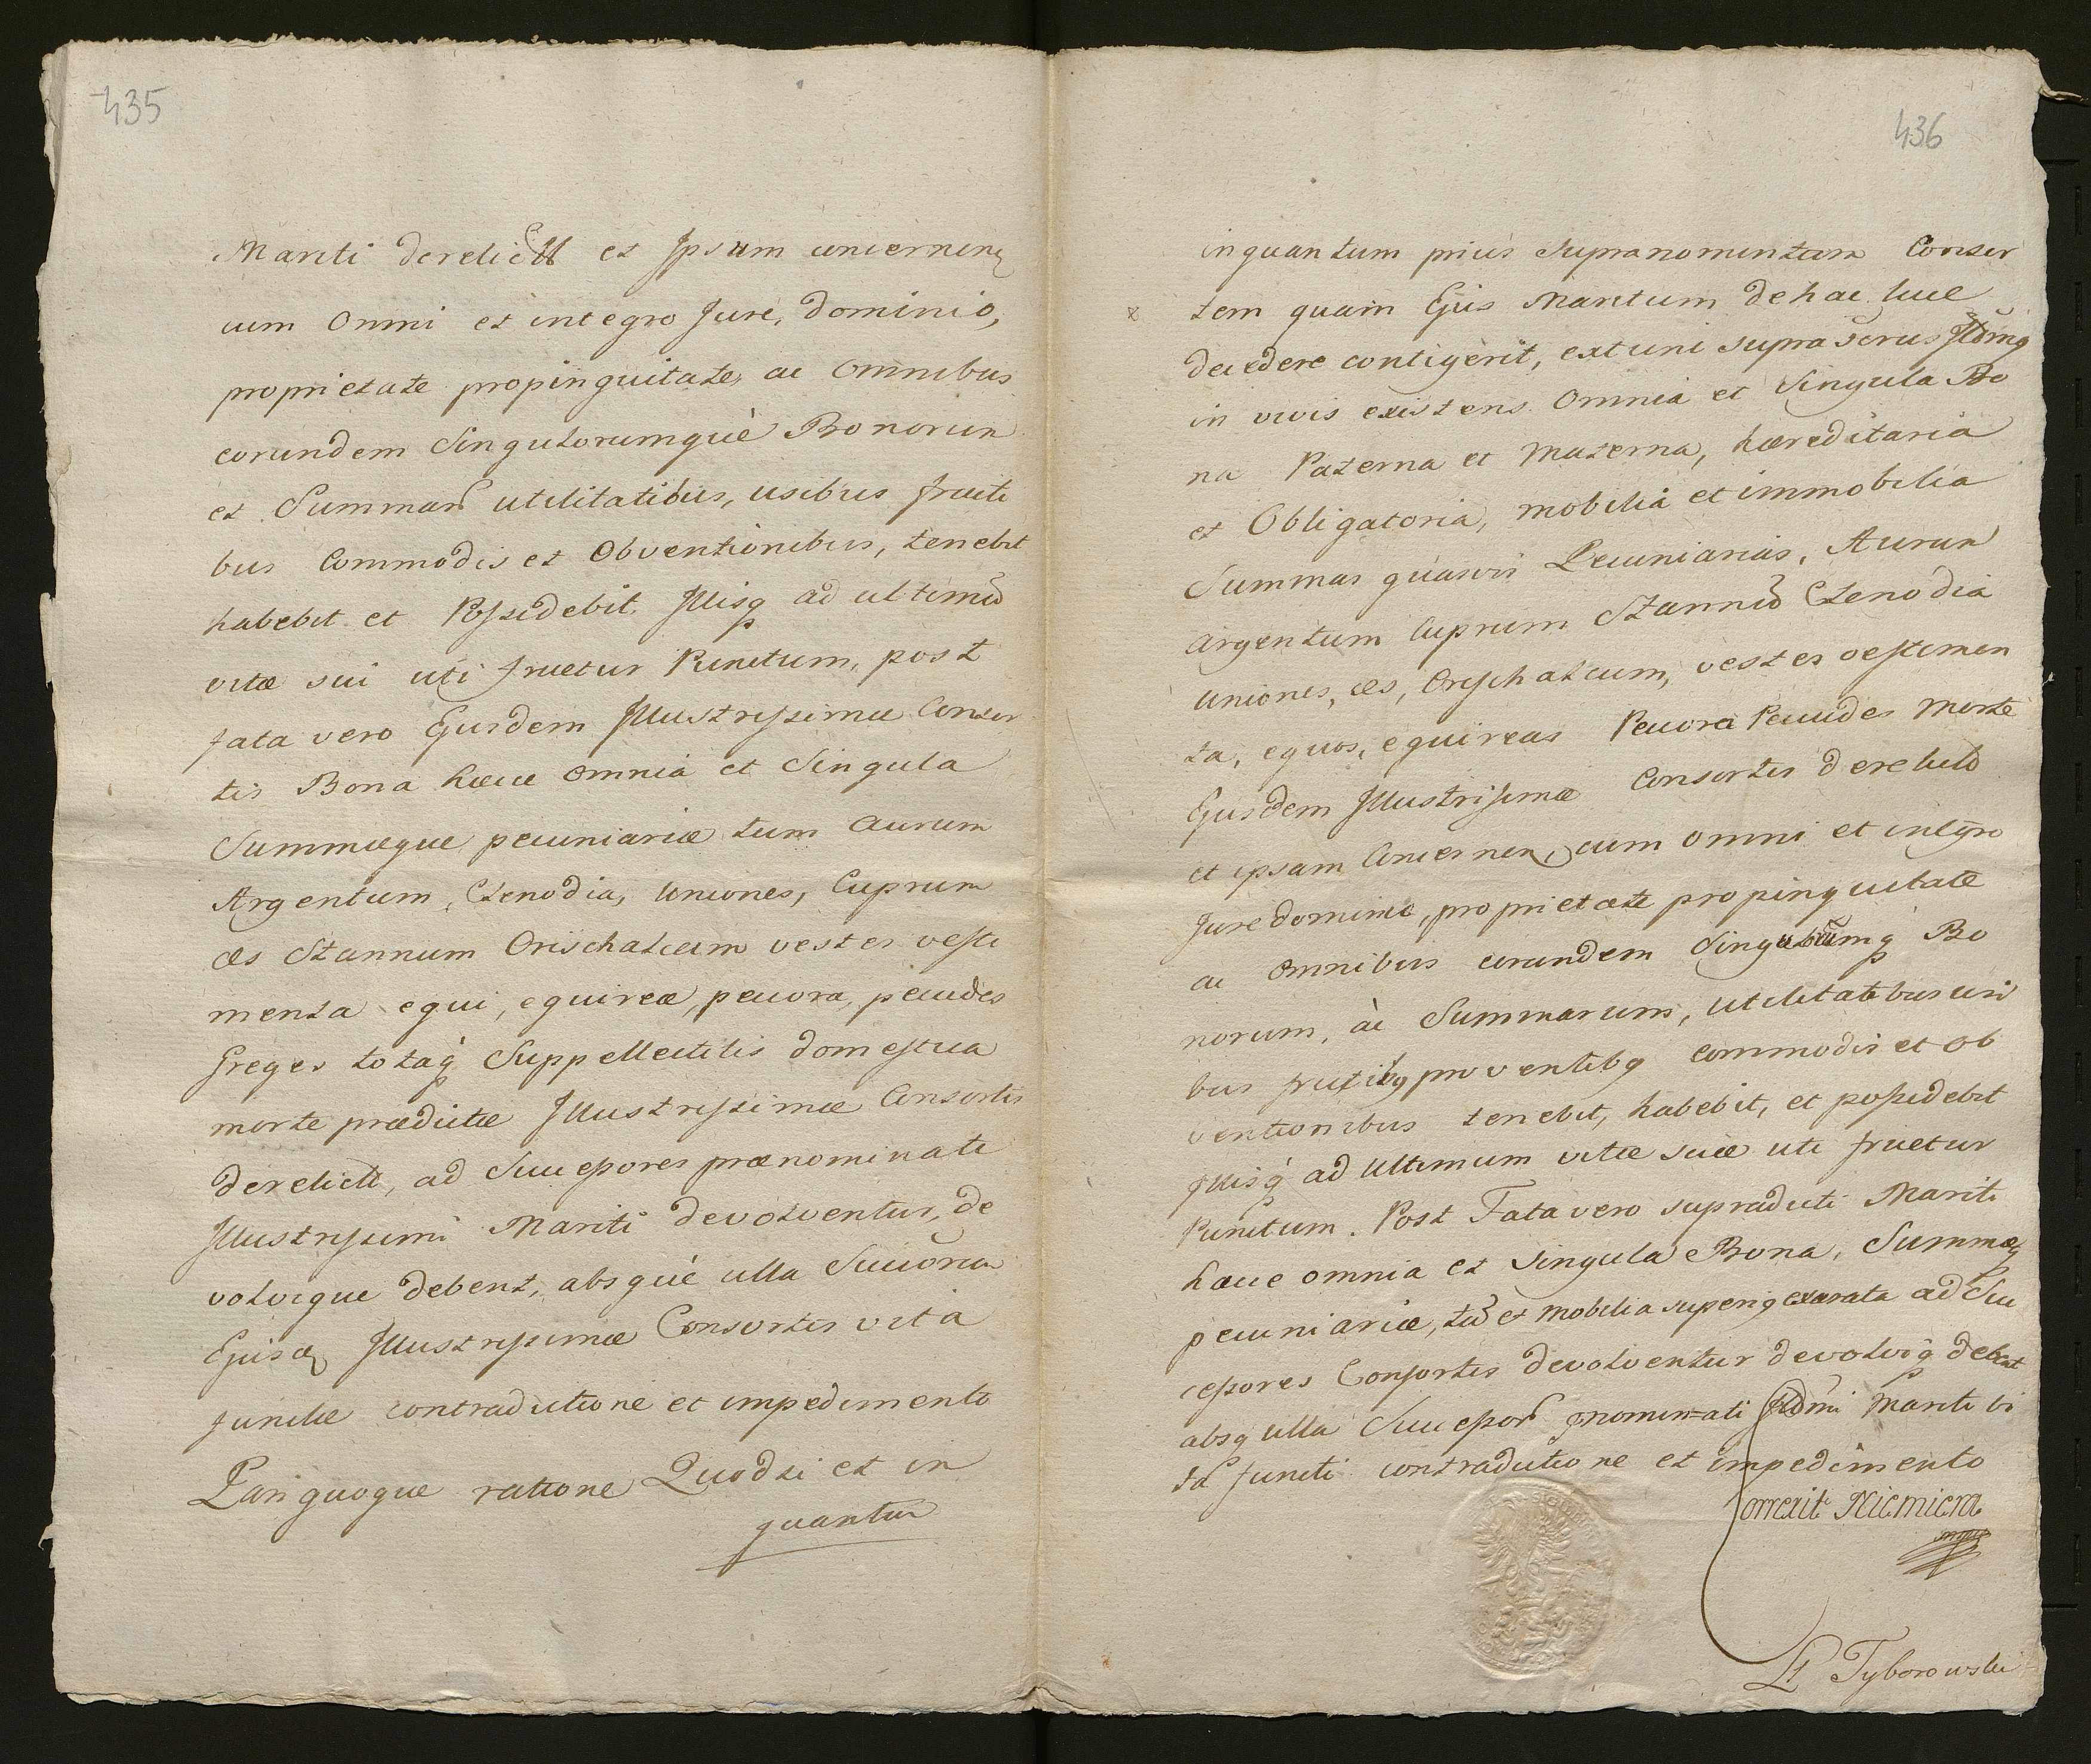 435
Mariti derelictt et Ipsum concernen
cum Omni et integro Jure, dominio,
proprietate propinquitate, ac Omnibus
eorundem Singulorumquè Bonorum
et Summar utilitatibus, usibus fructi
bus Commodis et Obventionibus, tenebit
habebit et Possidebit Illisq ad ultimũ
vitæ sui uti fruetur Punctum, post
fata vero Ejusdem Illustrissimæ Consor
tis Bona hæcce omnia et Singula
Summæque pecuniariæ tum Aurum
Argentum, Clenodia, Uniones, Cuprum
æs Stannum Orischalcum vestes vesti
menta equi, equireæ, pecora, pecudes
Greges totaq Suppellectilis domestica
morte prædictæ Illustrissimæ Consortis
derelicti, ad Successores prænominati
Illustrissimi Mariti devolventur, de
volvique debent, absquè ulla Succõrum
Ejusd Illustrissimæ Consortis vita
functæ contradictione et impedimento
Pari quoque ratione Quodsi et in
quantum
436
inquantum prius Supranominatam Consor
tem quam Ejus Maritum de hac luce
decedere contigerit, extunc supra
in vivis existens Omnia et Singula Bo
na Paterna et Materna, hæreditaria
et Obligatoria, mobilia et immobilia
Summas quasvis Pecuniarias, Aurum
Argentum Cuprum Stannũ Clenodia
Uniones, æs, Orischalcum, vestes vestimen
ta, equos, equireas Pecora Pecudes morte
Ejusdem Illustrissimæ Consortis derelicto
et ipsam Concernen, cum omni et integro
Jure dominio, proprietate propinquitate
ac Omnibus eorundem Singulorũmq Bo
norum, ac Summarum, utilitatibus usi
bus fructibq proventibq commodis et ob
ventionibus tenebit, habebit, et possidebit
Illisq ad Ultimum vitæ suæ uti fruetur
Punctum. Post Fata vero supradicti Mariti
hæcce omnia et Singula Bona, Summæq
pecuniariæ, tũ et mobilia superiq exarata ad Suc
cessores Consortis devolventur devolviq debent
absq ulla Successor pnomin=ati Illmi Mariti vi
ta functi contradictione et impedimento
Correxit Niemiera
mpp
Lt Tyborowski